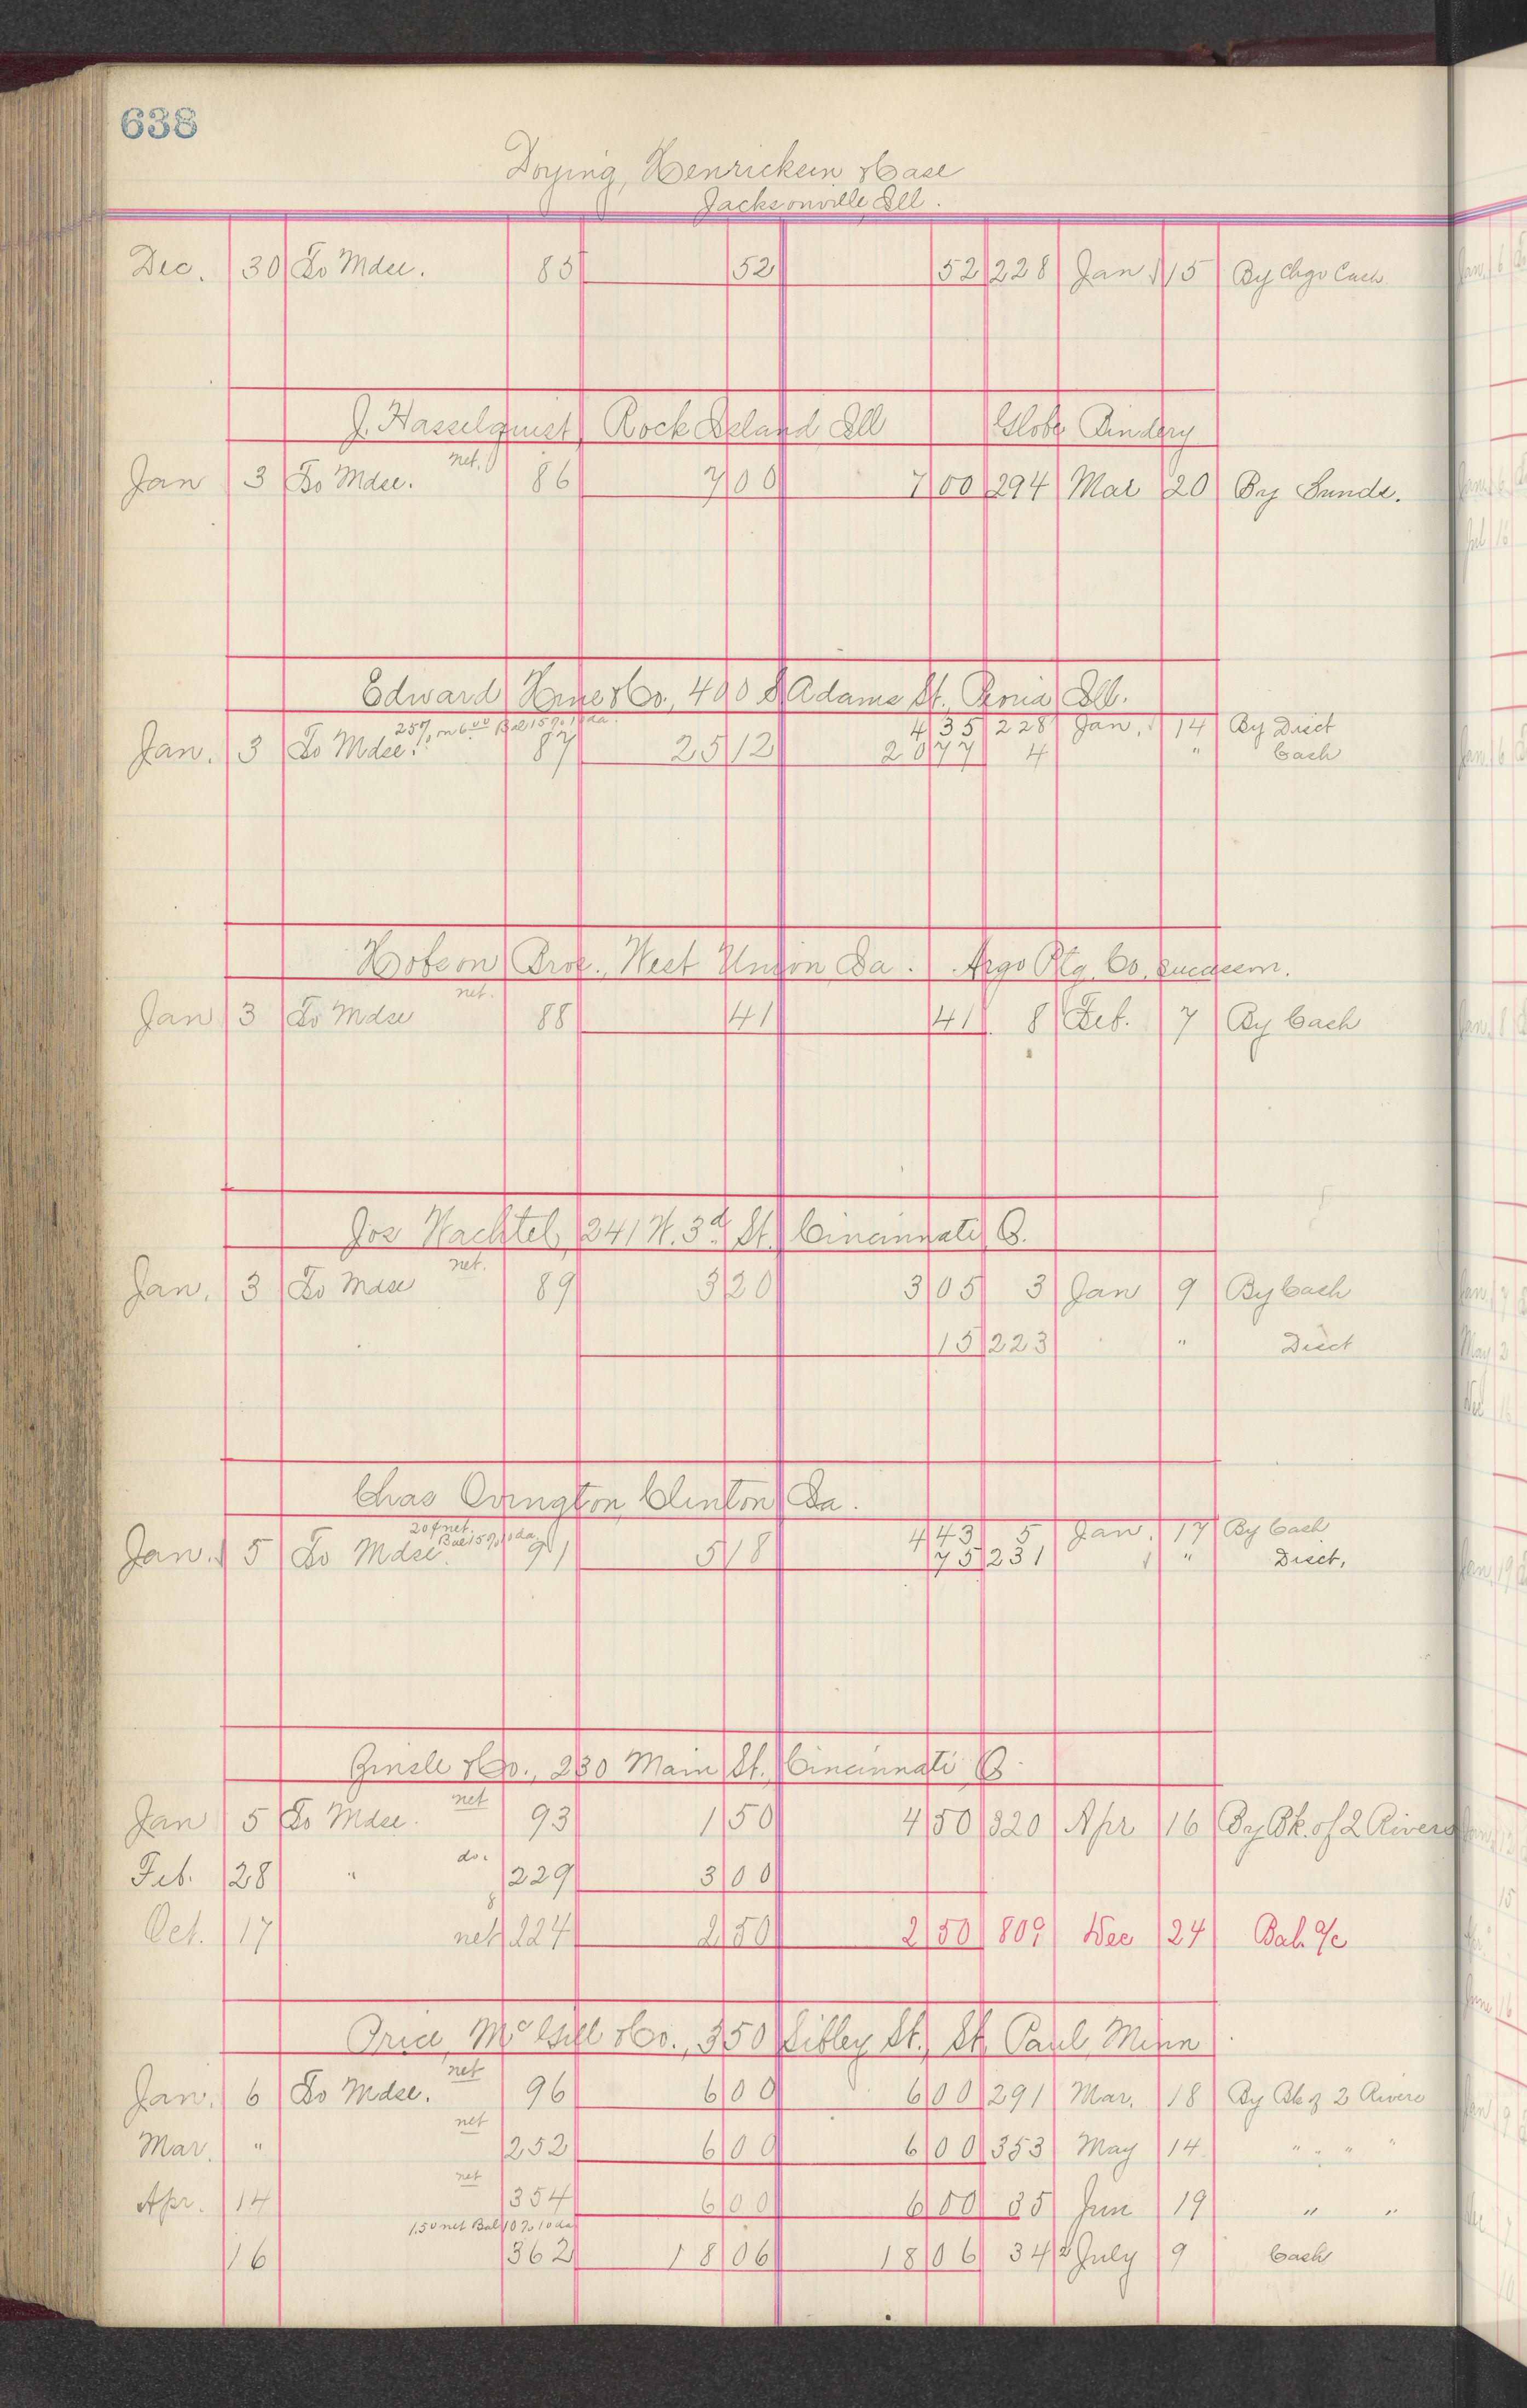 638
Doying, Henricksen & Case
Jacksonville Ill.
Dec. 30 To Mdse. 85 52 52 228 Jan 15 By Chgo Cash
J. Hasselquist, Rock Island Ill Globe Bindery
net.
Jan 3 To Mdse. 86 7 00 7 00 294 Mar 20 By Sunds.
Edward Hine & Co., 400 S Adams St., Peoria Ill.
25% on 6.00 Bal 15% 10 da. 4 35 228 Jan. 14 By Disct
Jan. 3 To Mdse. 87 25 12 20 77 4 " Cash
Hobson Bros., West Union Ia. Argo Ptg. Co. successors.
net.
Jan 3 To Mdse 88 41 41 8 Feb. 7 By Cash
Jos Wachtel, 241 W. 3d St. Cincinnati O.
net.
Jan. 3 To Mdse 89 3 20 3 05 3 Jan 9 By Cash
15 223 " Disct
Chas Ovington, Clinton Ia.
20¢ net. Bal 15% 10 da. 4 43 5 Jan. 17 By Cash
Jan. 5 To Mdse. 91 5 18 75 231 " Disct.
& Co., 230 Main St., Cincinnati O.
net
Jan 5 To Mdse. 93 1 50 4 50 320 Apr 16 By Bk. of 2 Rivers
do.
Feb. 28 " 229 3 00
8
Oct. 17 net 224 2 50 2 50 809 Dec 24 Bal. a/c
Price, McGill & Co., 350 Sibley St., St. Paul, Minn
net
Jan. 6 To Mdse. 96 6 00 6 00 291 Mar. 18 By Bk of 2 Rivers
net
Mar. " 252 6 00 6 00 353 May 14 " " " "
net
Apr. 14 354 6 00 6 00 35 Jun 19 " "
1.50 net Bal 10% 10 da
16 362 18 06 18 06 34 July 9 Cash